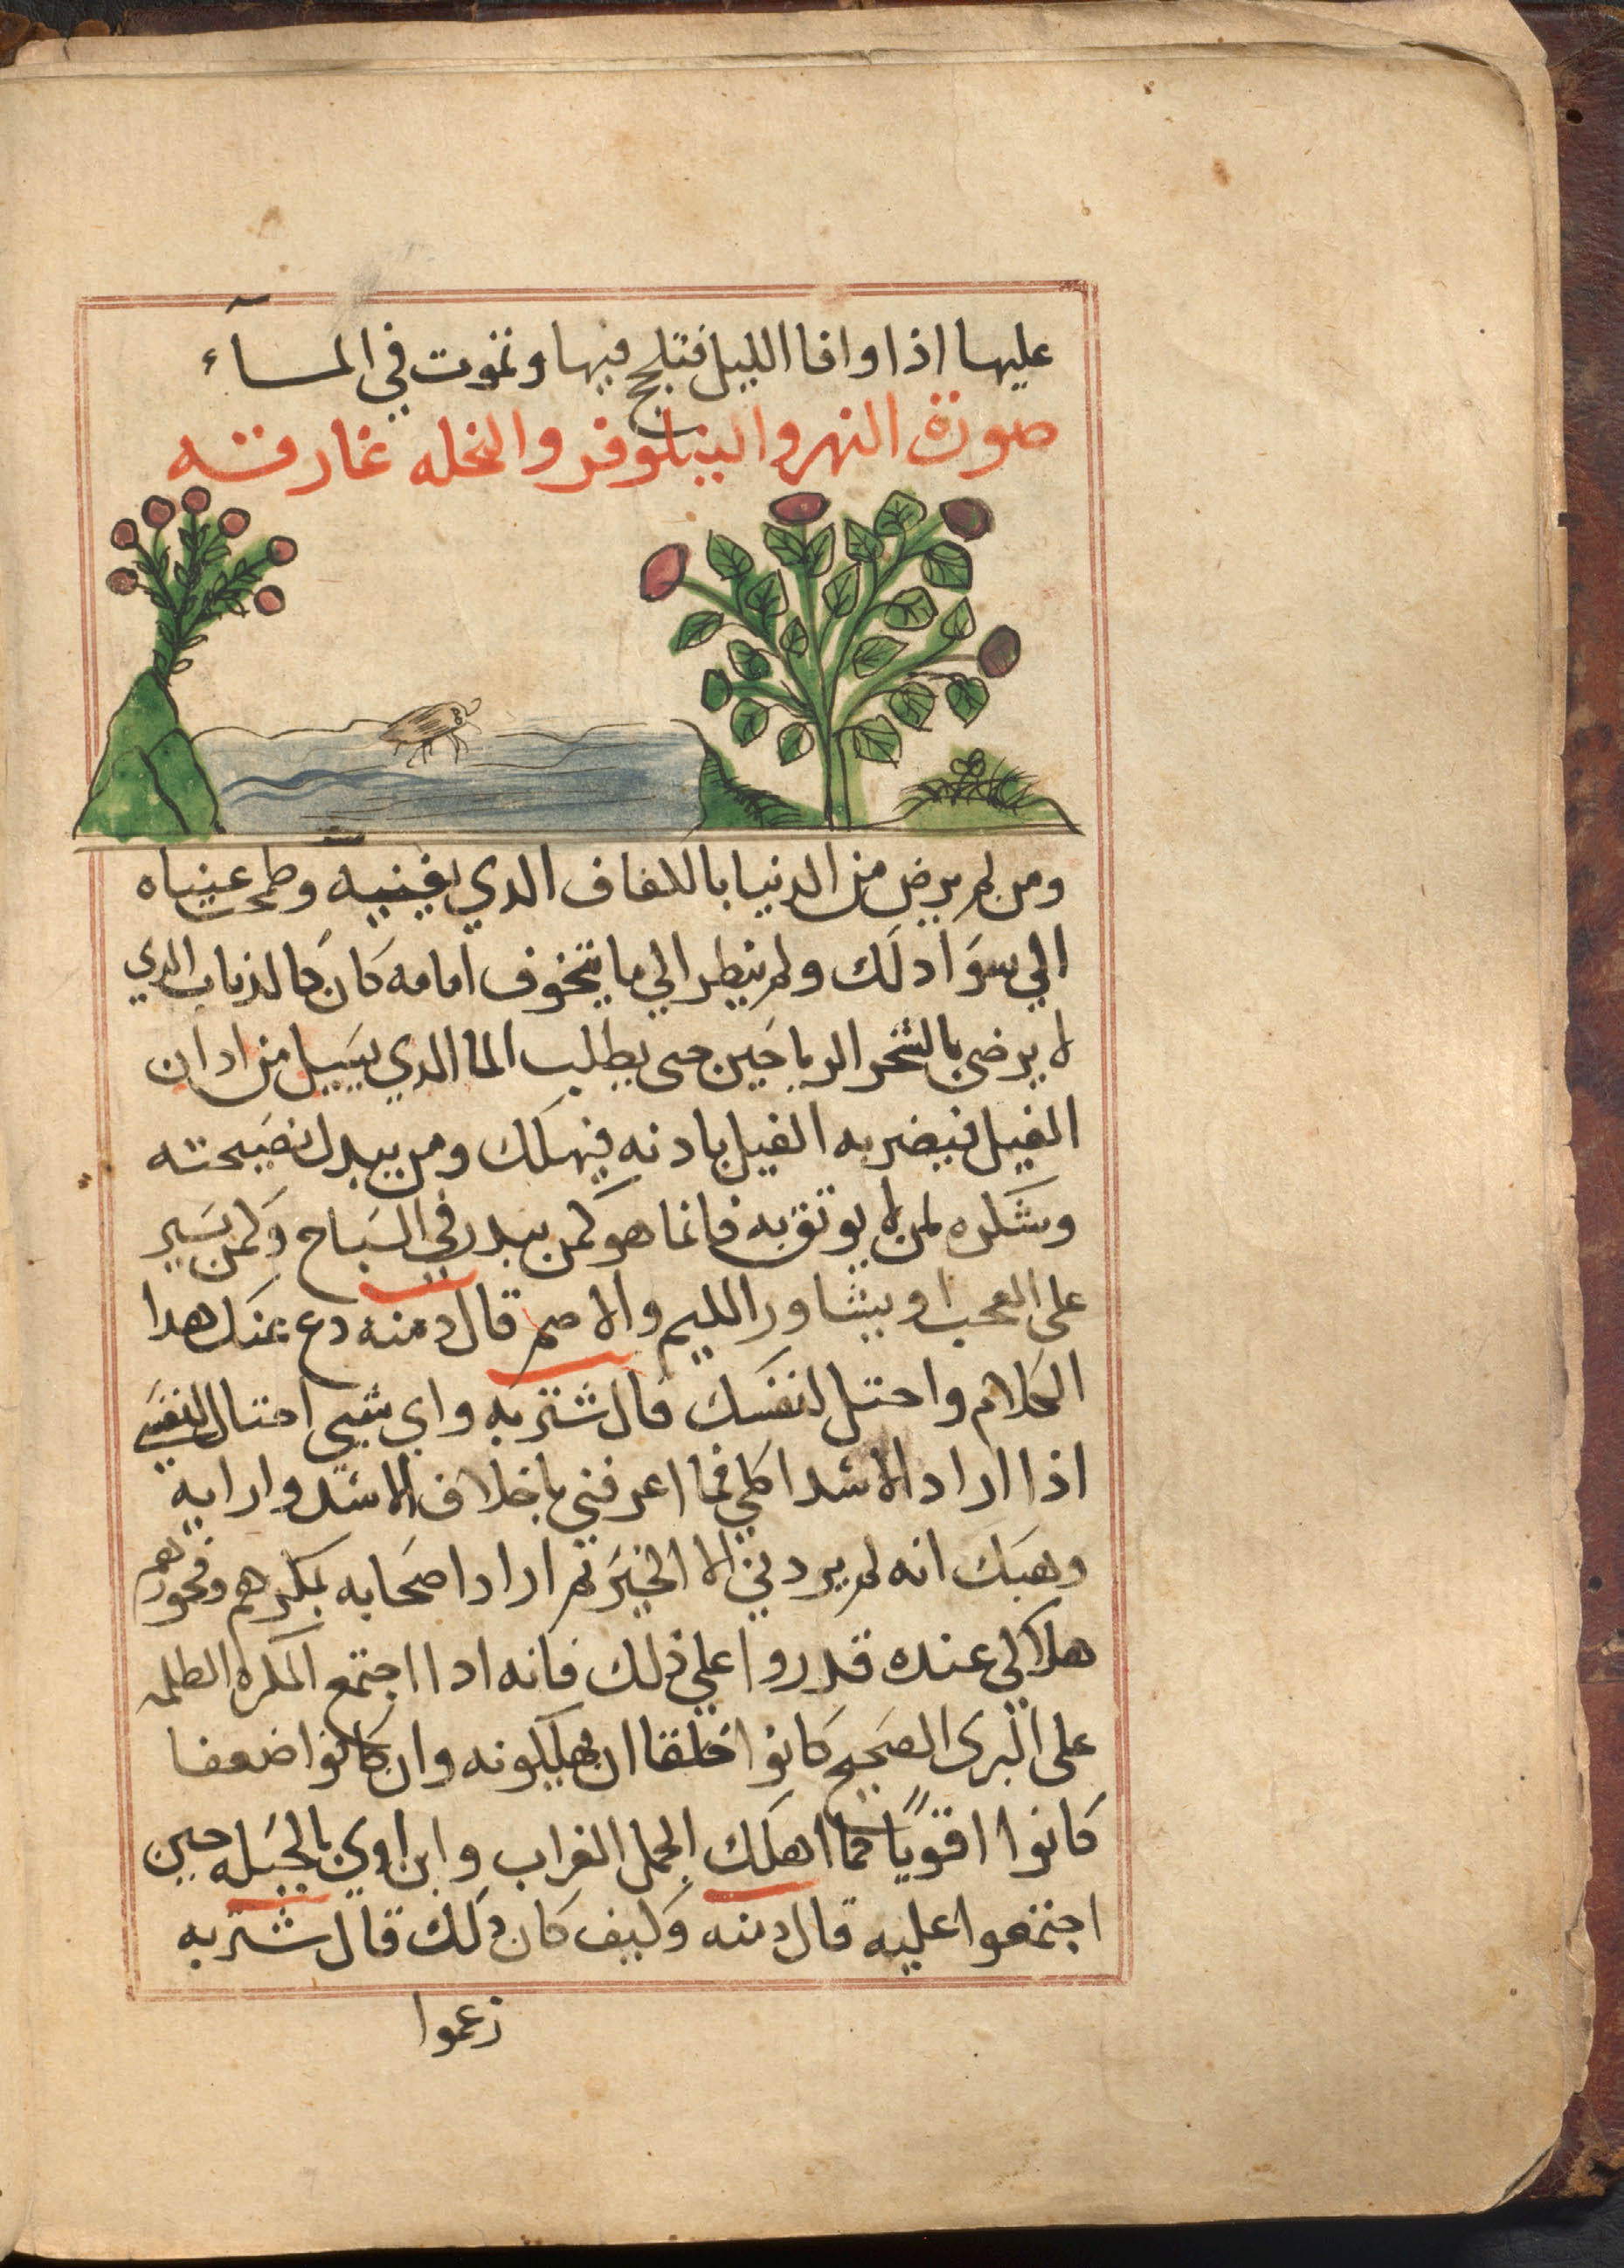 عليها اذا وافا الليل فتلج فيها وتموت في المسآء
صورة النهر والينلوفر والنحله غارقه
ومن لم يرض من الدنيا بالكفاف الدي يغنيه وطمحت عيناه
الي سوا دلك ولم ينظر الي ما يتخوف امامه كان كالذباب الدي
لا يرضى بالشجر الرياحين حتى يطلب الما الدي يسيل من ادان
الفيل فيضربه الفيل بادنه فيهلك ومن يبدل نصيحته
وشكره لمن لا يوتق به فانما هو كمن يبدر في السباح وكمن يسير
على العجب او يشاور اللايم والاصم قال دمنه دع عنك هدا
الكلام واحتل لنفسك قال شتربه واي شيي احتال لنفسي
اذا اراد الاسد اكلي فما اعرفني باخلاق الاسد وارايه
وهبك انه لم يرد بي الا الخير تم اراد اصحابه بمكرهم وفجورهم
هلاكي عنده قدروا علي ذلك فانه ادا اجتمع المكره الظلمه
على البرى الصحيح كانوا خلقا ان يهلكونه وان كانوا ضعفا
كانوا اقوياً كما اهلك الجمل الغراب وابن اوي بالحيله حين
اجتمعوا عليه قال دمنه وكيف كان دلك قال شتربه
زعموا